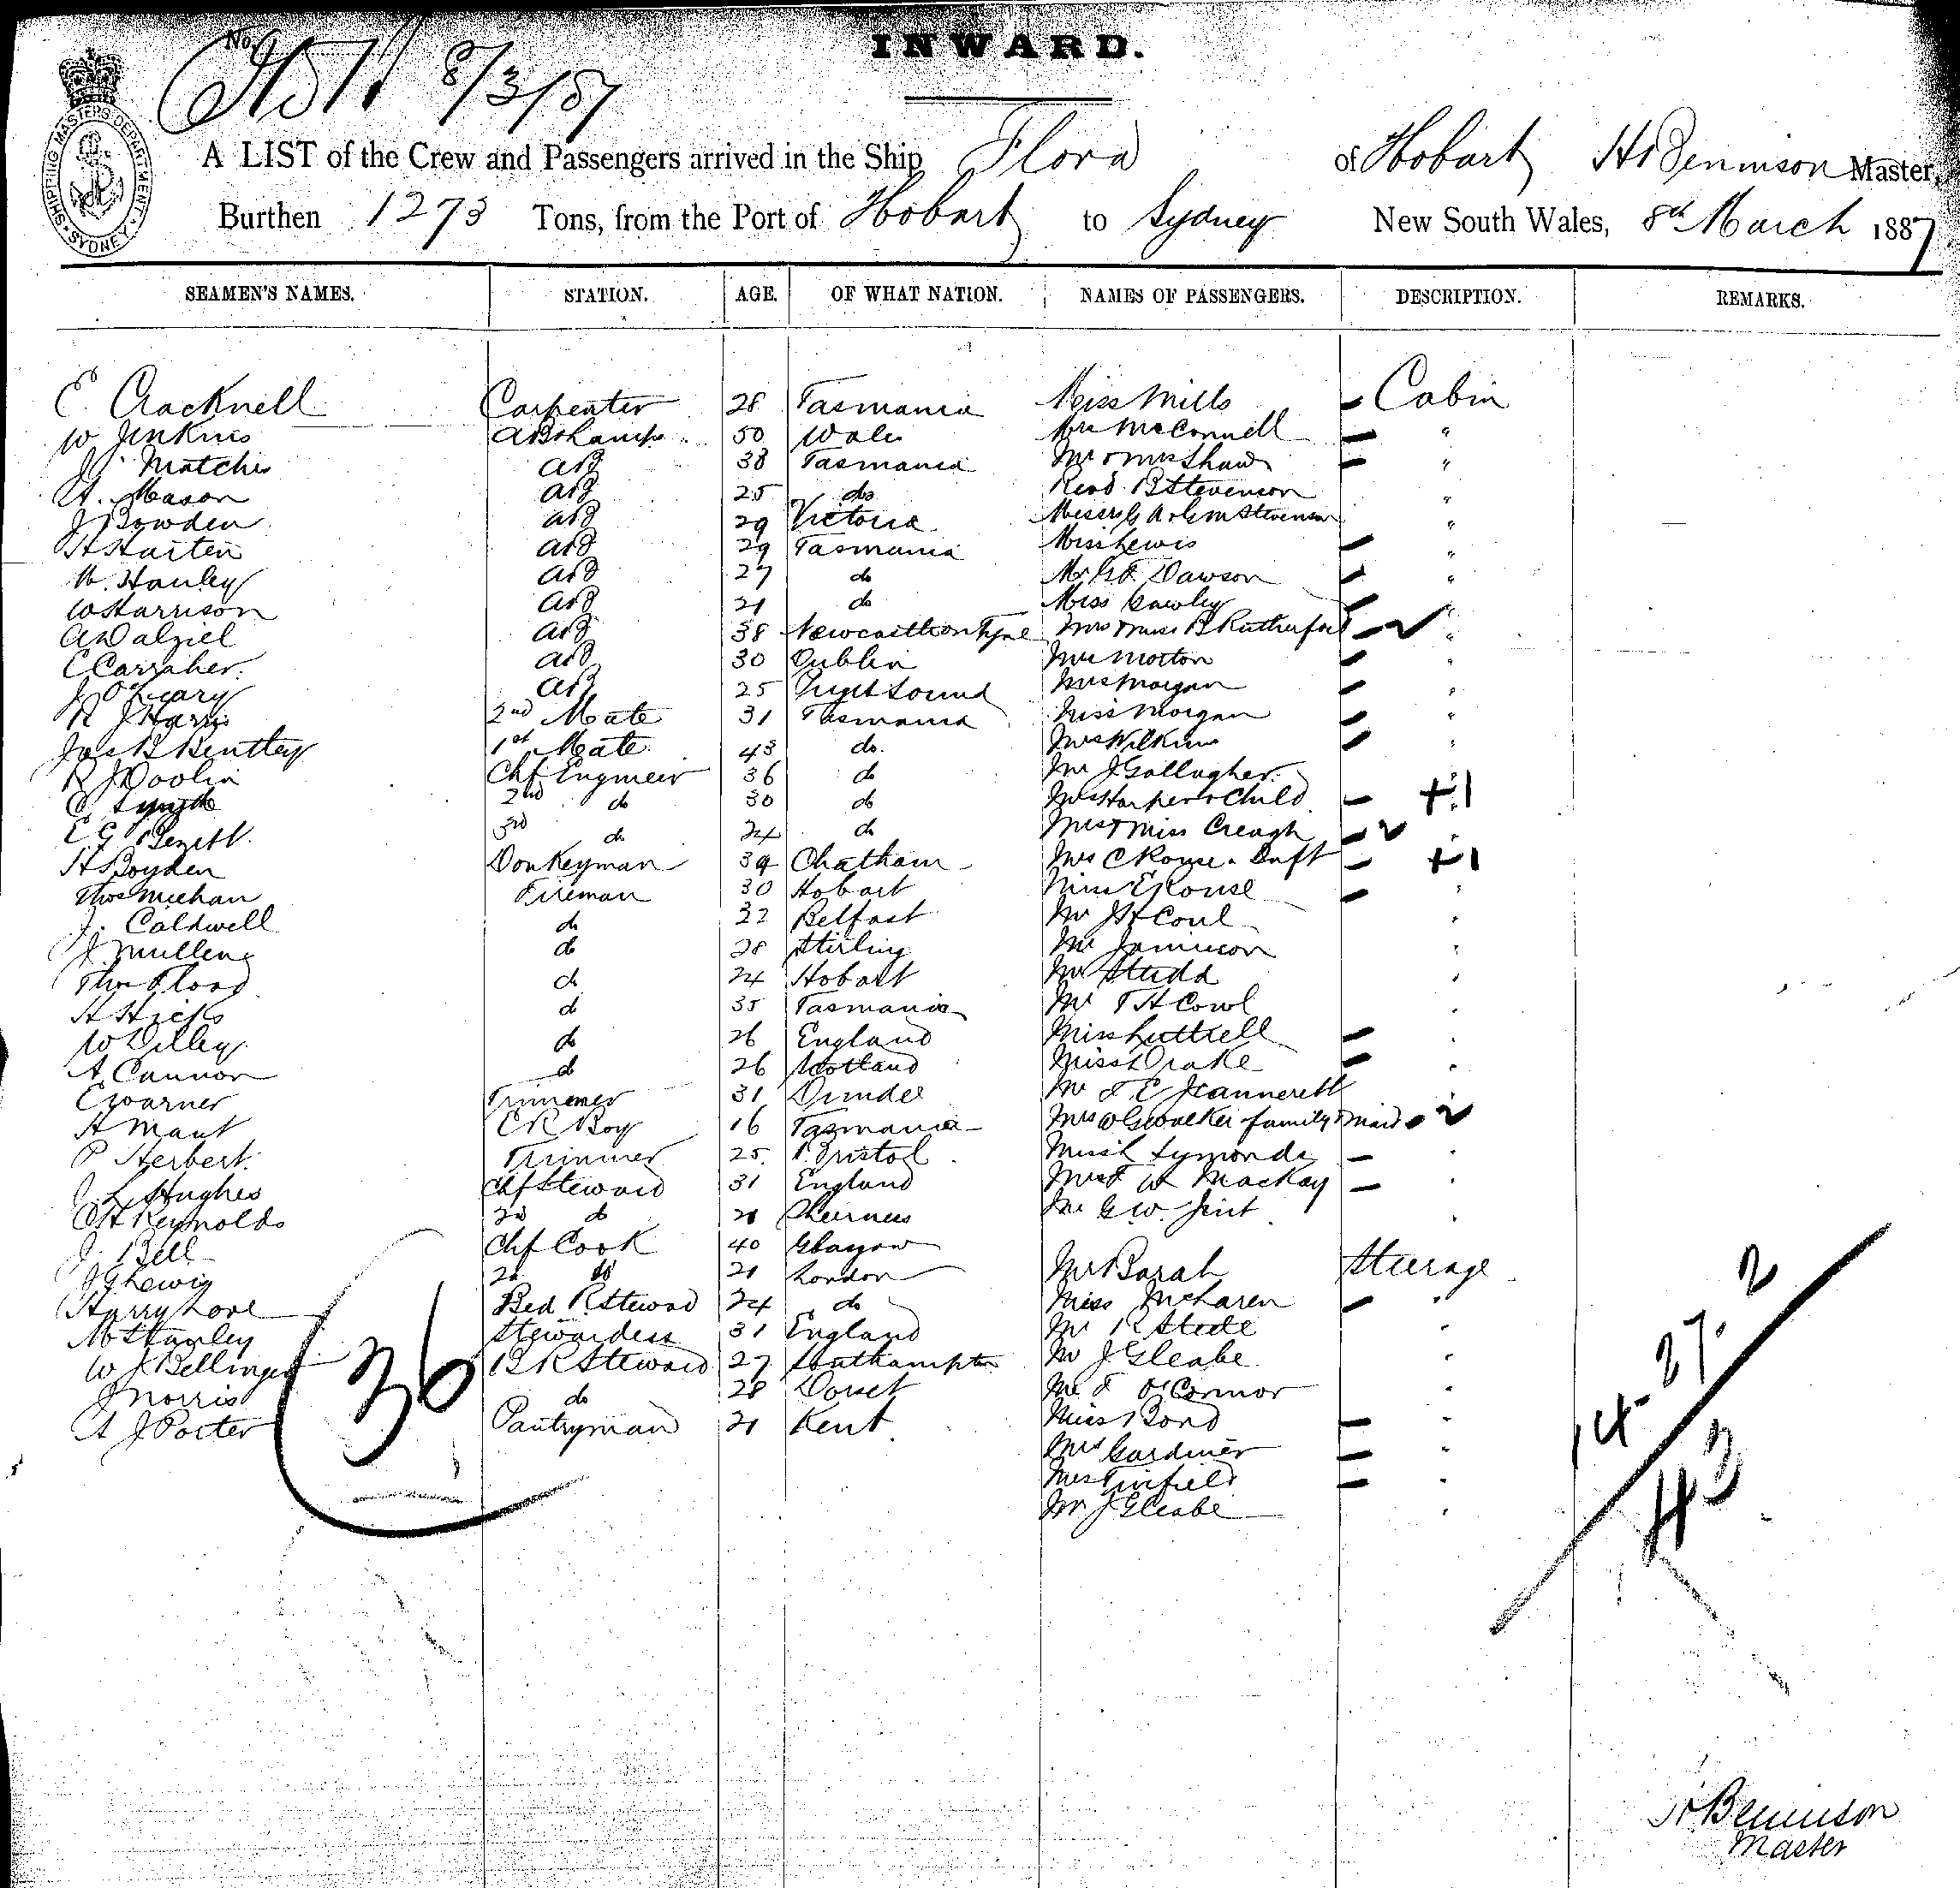 INWARD.
No.
8/3/87
SHIPPING MASTERS DEPARTMENT SYDNEY
A LIST of the Crew and Passengers arrived in the Ship Flora of Hobart H Bennison Master,
Burthen 1273 Tons, from the Port of Hobart to Sydney New South Wales, 8th March 1887
SEAMEN'S NAMES. STATION. AGE. OF WHAT NATION. NAMES OF PASSENGERS. DESCRIPTION. REMARKS.
E. Cracknell Carpenter 28 Tasmania Miss Mills Cabin
W Jenkins AB & Lamps 50 Wales Mrs McConnell "
J. Matches AB 38 Tasmania Mr & Mrs Shaw "
A. Mason AB 25 do Revd. B Stevenson "
J Bowden AB 29 Victoria Messrs G A & G M Stevenson "
H Harten AB 29 Tasmania Miss Lewis "
W. Hanley AB 27 do Mr Dawson "
W Harrison AB 21 do Miss Cawley "
A Dalziel AB 38 Newcastle on Tyne Mrs & Miss B Rutherford "
C Carraher AB 30 Dublin Mrs Morton "
J O'Leary AB 25 Puget Sound Mrs Morgan "
R J Harris 2nd Mate 31 Tasmania Miss Morgan "
Jas B Bentley 1st Mate 43 do. Mrs Wilkins "
R J Doolin Chf Engineer 36 do Mr J Gallagher
C. Lynch 2nd do 30 do Mrs Harper & Child +1
E G 3rd do 24 do Mrs & Miss Creagh "
H Boyden Donkeyman 39 Chatham Mrs C Rouse & Inft +1
Thos Meehan Fireman 30 Hobart Miss E Rouse "
J. Caldwell do 22 Belfast Mr J H Coul "
J. Mullens do 28 Stirling Mr Jamieson "
Thos Flood do 24 Hobart Mr Studd "
H Hicks do 35 Tasmania Mr T H Cowl "
W Dilley do 26 England Miss Luttrell "
A Cannon do 26 Scotland Miss L Drake "
E Warner Trimmer 31 Dundee Mr T E Jeannerett "
A Mant E R Boy 16 Tasmania Mrs W G Walker family & maid
P Herbert Trimmer 25 Bristol Miss L Symonds "
J L Hughes Chf Steward 31 England Mackay "
C H Reynolds 2nd do 21 Sheerness Mr G. W. "
J. Bell Chf Cook 40 Glasgow
J G Lewis 2d do 21 London Mr Barah Steerage
Harry Love Bed R. Steward 24 do Miss McLaren "
M Hanley Stewardess 31 England Mr R Steele "
W J Bellinger B R Steward 27 Southampton Mr J Gleabe "
J Norris do 28 Dorset Mr T O'Connor "
A J Porter Pantryman 21 Kent Miss Bond "
Mrs Gardiner "
Mrs Tinfield "
Mr J Gleabe "
36
14. 27. 2
43
H Bennison
Master